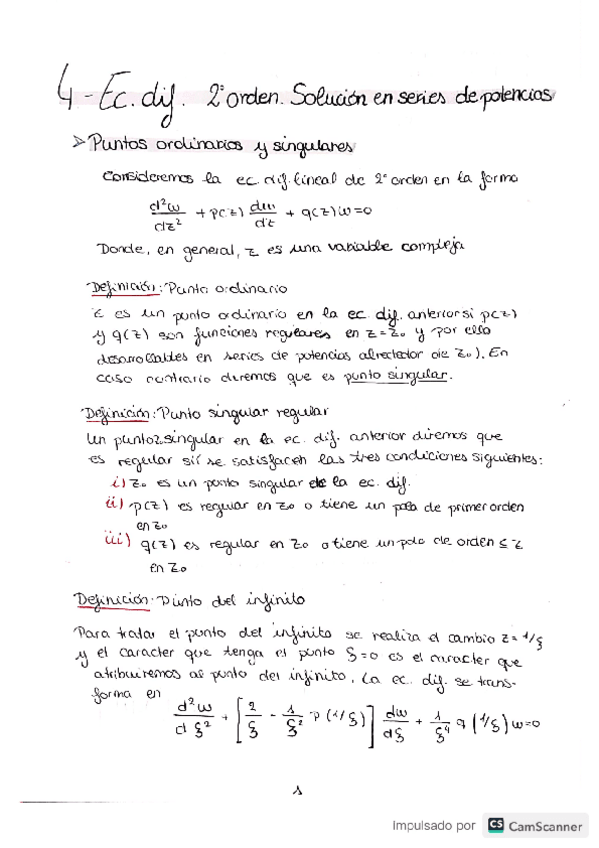 4-Ec. dif. 2º orden. Solución en series de potencias
➢ Puntos ordinarios y singulares
Consideremos la ec. dif. lineal de 2º orden en la forma
d²w/dz² + p(z) dw/dz + q(z)w=0
Donde, en general, z es una variable compleja
Definición: Punto ordinario
es un punto ordinario en la ec. dif. anterior si p(z)
y q(z) son funciones regulares en z=z₀ y por ello
desarrollables en series de potencias alrededor de z₀). En
caso contrario diremos que es punto singular.
Definición: Punto singular regular
Un punto z singular en la ec. dif. anterior diremos que
es regular sii se satisfacen las tres condiciones siguientes:
i) z₀ es un punto singular de la ec. dif.
ii) p(z) es regular en z₀ o tiene un polo de primer orden
en z₀
iii) q(z) es regular en z₀ o tiene un polo de orden ≤ 2
en z₀
Definición: Punto del infinito
Para tratar el punto del infinito se realiza el cambio z = 1/ξ
y el caracter que tenga el punto ξ=0 es el caracter que
atribuiremos al punto del infinito. La ec. dif. se trans-
forma en
d²w/dξ² + [2/ξ - 1/ξ² p(1/ξ)] dw/dξ + 1/ξ⁴ q(1/ξ)w=0
1
Impulsado por CS CamScanner